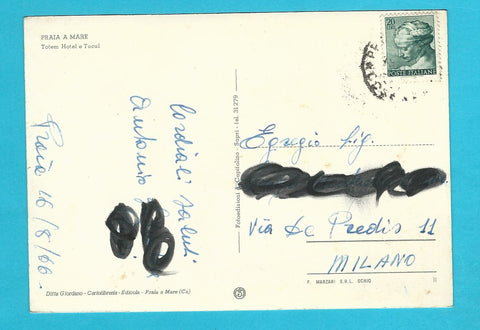 PRAIA A MARE
Totem Hotel e Tucul
20
POSTE ITALIANE
Cordiali saluti
Antonio
Praia 16/8/66.
Egregio Sig.
Via De Predis 11
MILANO
Fotoedizioni A. Cunstolino - Sapri - tel. 31279
Ditta Giordano - Cartolibreria - Edicola - Praia a Mare (Cs)
P. MARZARI S.R.L. SCHIO